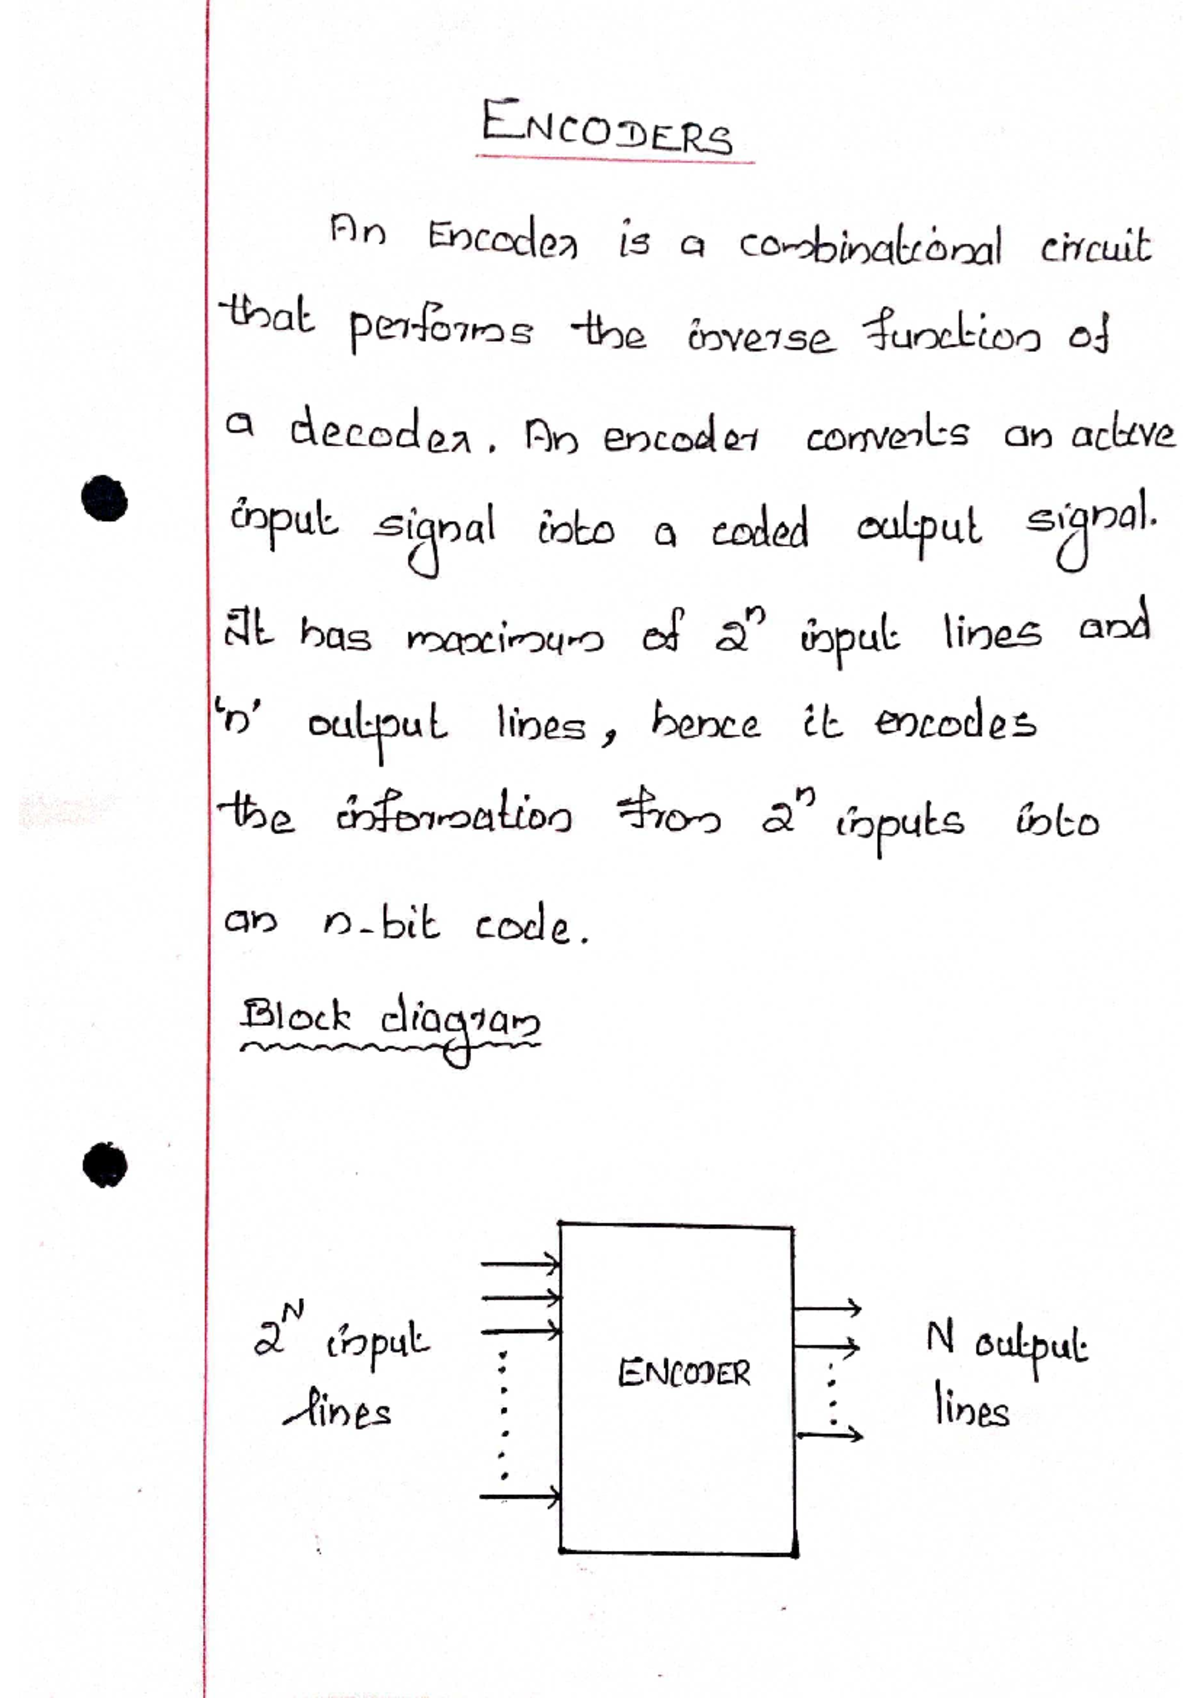 ENCODERS
An Encoder is a combinational circuit
that performs the inverse function of
a decoder. An encoder converts an active
input signal into a coded output signal.
It has maximum of 2ⁿ input lines and
'n' output lines, hence it encodes
the information from 2ⁿ inputs into
an n-bit code.
Block diagram
2ᴺ input
lines
ENCODER
N output
lines